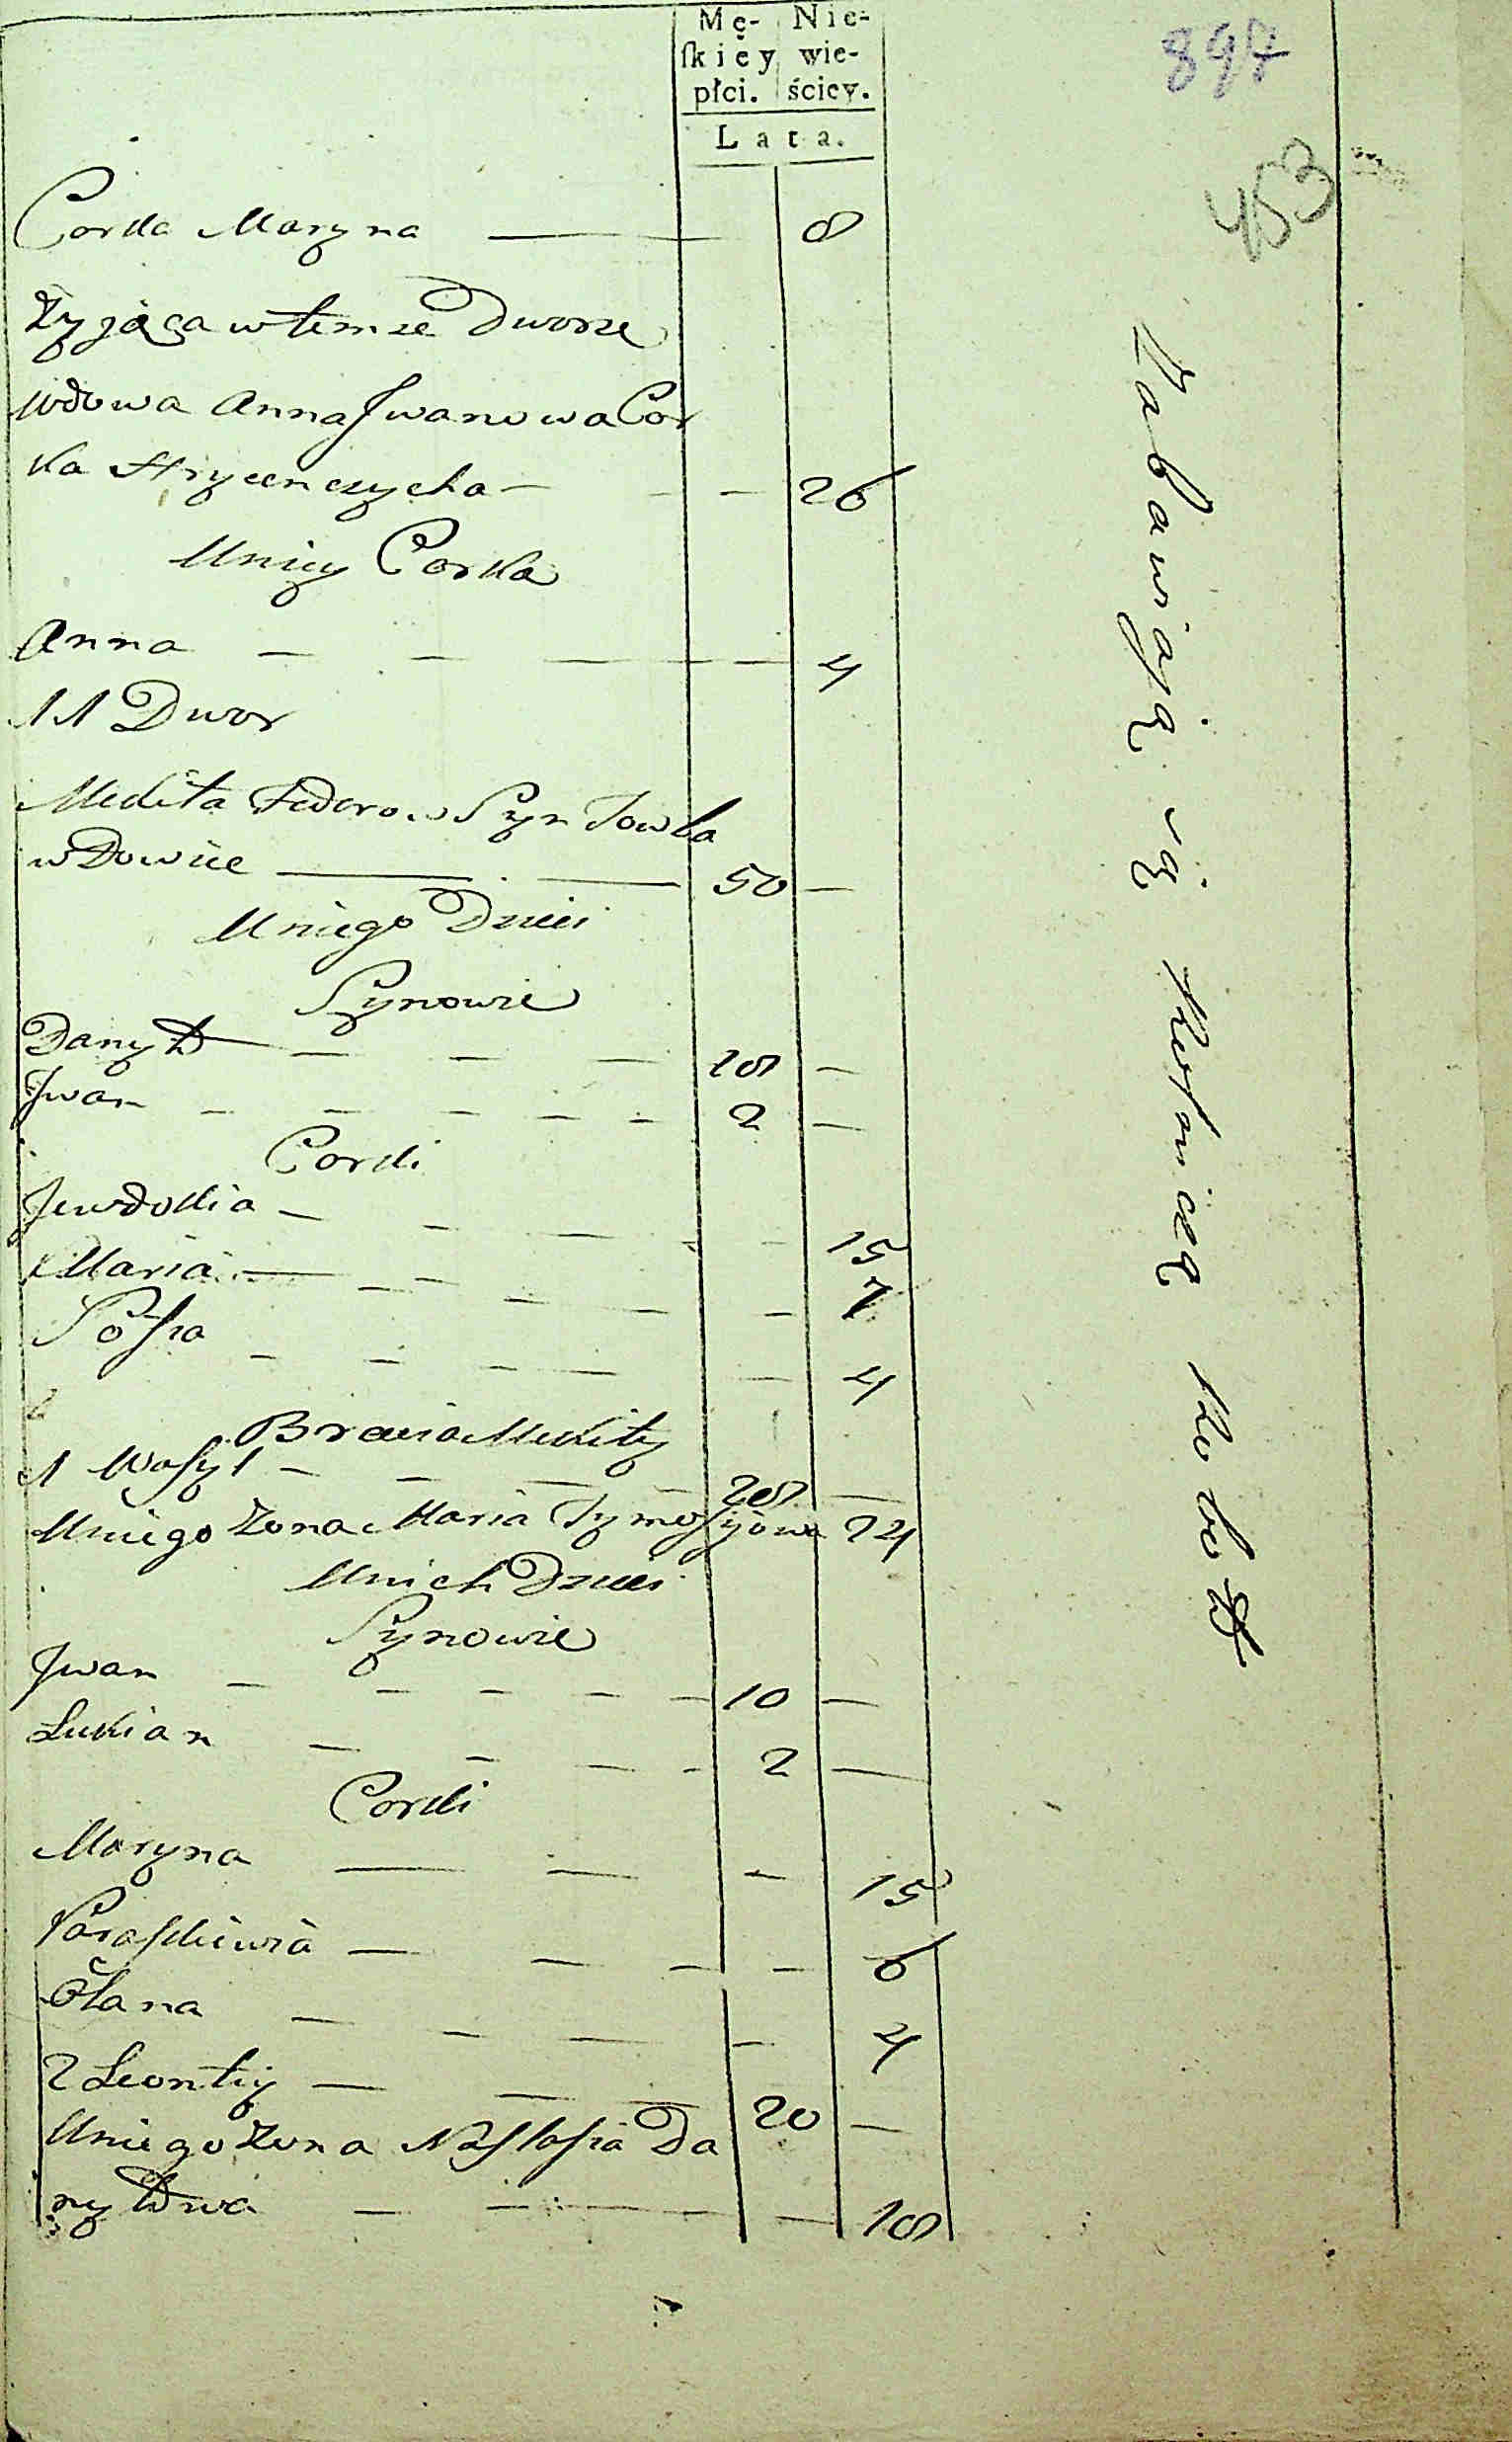 Mę- Nie-
ſkiey wie-
płci. ściey.
Lata.
897
453
Corka Maryna — 8
Zyjąca w temze Dworze
Wdowa Anna Jwanowa Cor
ka Hrycenczycha — 26
U niey Corka
Anna — 4
11 Dwor
Mekita Fedorow Syn Towba
wdowiec — 50 —
U niego Dzieci
Synowie
Danyło — 18 —
Jwan — 2 —
Corki
Jewdokia — 15
Maria — 7
Zosia — 4
Bracia Mekity
1 Wasyl — 28 —
U niego Zona Maria Tymosijowa 24
U nich Dzieci
Synowie
Jwan — 10 —
Lukian — 2 —
Corki
Maryna — 15
Paraskiewia — 6
Ołana — 4
2 Leontiy — 20 —
U niego Zona Nastasia Da
nyłowa — 18
Zabawiają się Rolniczą Robotą